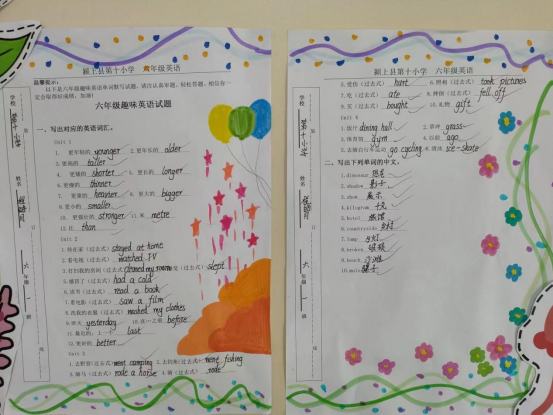 颍上县第十小学 六年级英语
温馨提示:
六年级趣味英语试题
一、写出对应的英语词汇。
Unit 1
1. 更年轻的 younger 2. 更年长的 older
3. 更高的 taller
4. 更矮的 shorter 5. 更长的 longer
6. 更瘦的 thinner
7. 更重的 heavier 8. 更大的 bigger
9. 更小的 smaller
10. 更强壮的 stronger 11. 米 metre
12. 比 than
Unit 2
1. 待在家(过去式) stayed at home
2. 看电视(过去式) watched TV
3. 打扫我的房间(过去式) cleaned my room (过去式) slept
had a cold
5. 读书(过去式) read a book
saw a film
washed my clothes
9. 昨天 yesterday before
last
12. 更好的 better
Unit 3
1. 去野营(过去式) went camping 2. 去钓鱼(过去式) went fishing
3. 骑马(过去式) rode a horse 4. 骑(过去式) rode
学校 第十小学
姓名
六年级 一 班
颍上县第十小学 六年级英语
5. 受伤(过去式) hurt 6. 照相(过去式) took pictures
7. 吃(过去式) ate fell off
9. 买(过去式) bought 10. 礼物 gift
Unit 4
1. 饭厅 dining hall 2. 草坪 grass
3. 体育馆 gym ago
go cycling ice-skate
二、写出下列单词的中文。
1. dinosaur 恐龙
2. shadow 影子
3. show 展示
4. kilogram 千克
5. hotel 旅馆
6. countryside 乡村
7. lamp 台灯
8. broken 破损
9. beach 沙滩
10. mule 骡子
学校 第十小学
姓名
六年级 一 班